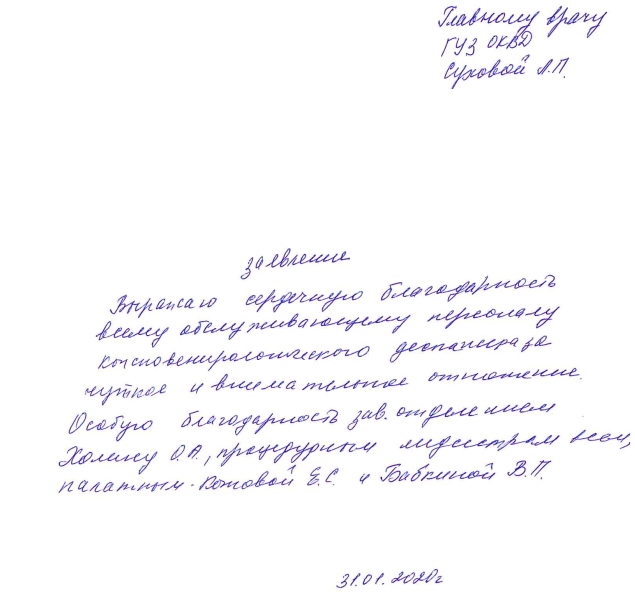 Главному врачу
ГУЗ ОКВД
Суховой Л.П.
заявление
Выражаю сердечную благодарность
всему обслуживающему персоналу
кожновенирологического деспансера за
чуткое и внимательное отношение.
Особую благодарность зав. отделением
Холину О.А., процедурным медсестрам всем,
палатным - Котовой Е.С. и Бабкиной В.П.
31.01.2020г